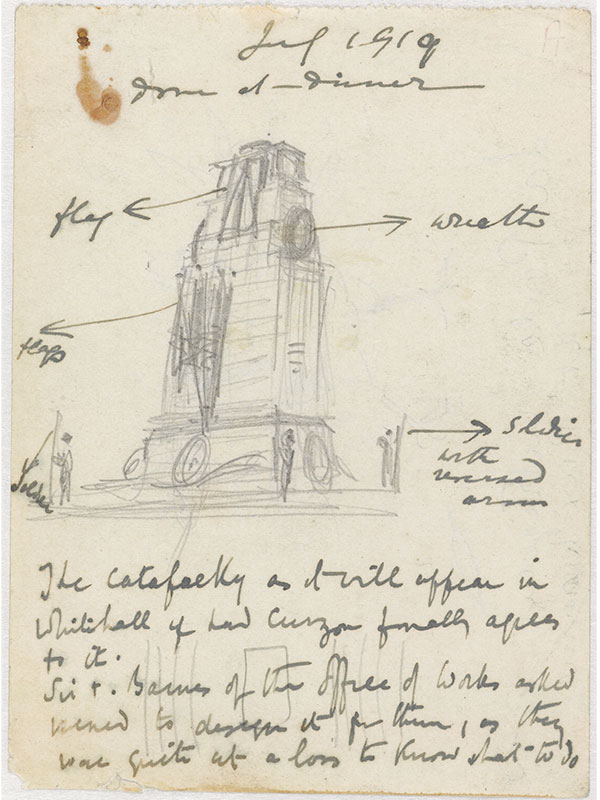 July 1919
Done at dinner
flag
wreath
flags
soldier
Soldier
with
reversed
arms
The catafalky as it will appear in
Whitehall if Lord Curzon finally agrees
to it.
Sir F. Baines of the office of works asked
to design it for them, as they
was quite at a loss to know what to do